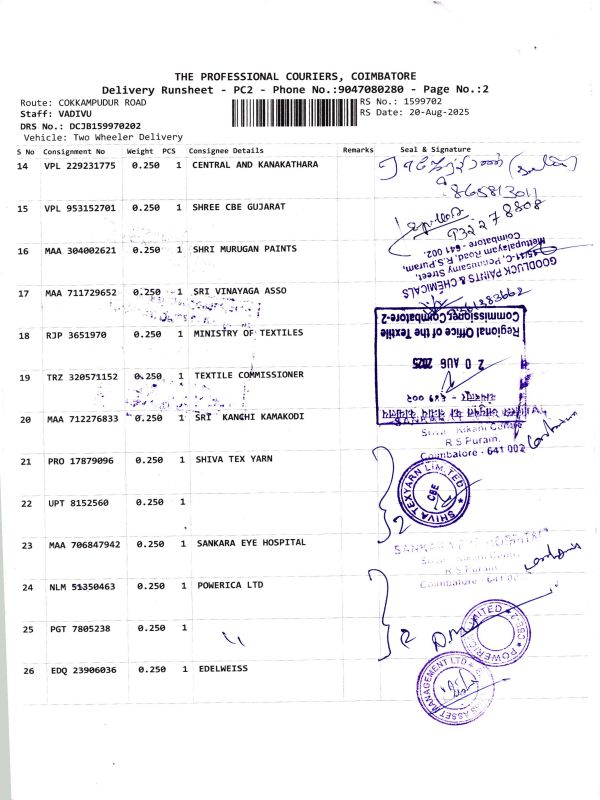 THE PROFESSIONAL COURIERS, COIMBATORE
Delivery Runsheet - PC2 - Phone No.:9047080280 - Page No.:2
Route: COKKAMPUDUR ROAD
RS No.: 1599702
Staff: VADIVU
RS Date: 20-Aug-2025
DRS No.: DCJB159970202
Vehicle: Two Wheeler Delivery
S No Consignment No Weight PCS Consignee Details Remarks Seal & Signature
14 VPL 229231775 0.250 1 CENTRAL AND KANAKATHARA
15 VPL 953152701 0.250 1 SHREE CBE GUJARAT
9322278808
16 MAA 304002621 0.250 1 SHRI MURUGAN PAINTS
GOODLUCK PAINTS & CHEMICALS
Mettupalayam Road, R.S.Puram,
Coimbatore - 641 002.
17 MAA 711729652 0.250 1 SRI VINAYAGA ASSO
18 RJP 3651970 0.250 1 MINISTRY OF TEXTILES
Regional Office of the Textile
Commissioner, Coimbatore-2
20 AUG 2025
19 TRZ 320571152 0.250 1 TEXTILE COMMISSIONER
20 MAA 712276833 0.250 1 SRI KANCHI KAMAKODI
R S Puram,
Coimbatore - 641 002
21 PRO 17879096 0.250 1 SHIVA TEX YARN
SHIVA TEXYARN LIMITED
CBE
2
22 UPT 8152560 0.250 1
23 MAA 706847942 0.250 1 SANKARA EYE HOSPITAL
SANKARA EYE HOSPITAL
R.S Puram
Coimbatore - 641 002
24 NLM 51350463 0.250 1 POWERICA LTD
25 PGT 7805238 0.250 1
2
POWERICA LIMITED
CBE-2
26 EDQ 23906036 0.250 1 EDELWEISS
ASSET MANAGEMENT LTD